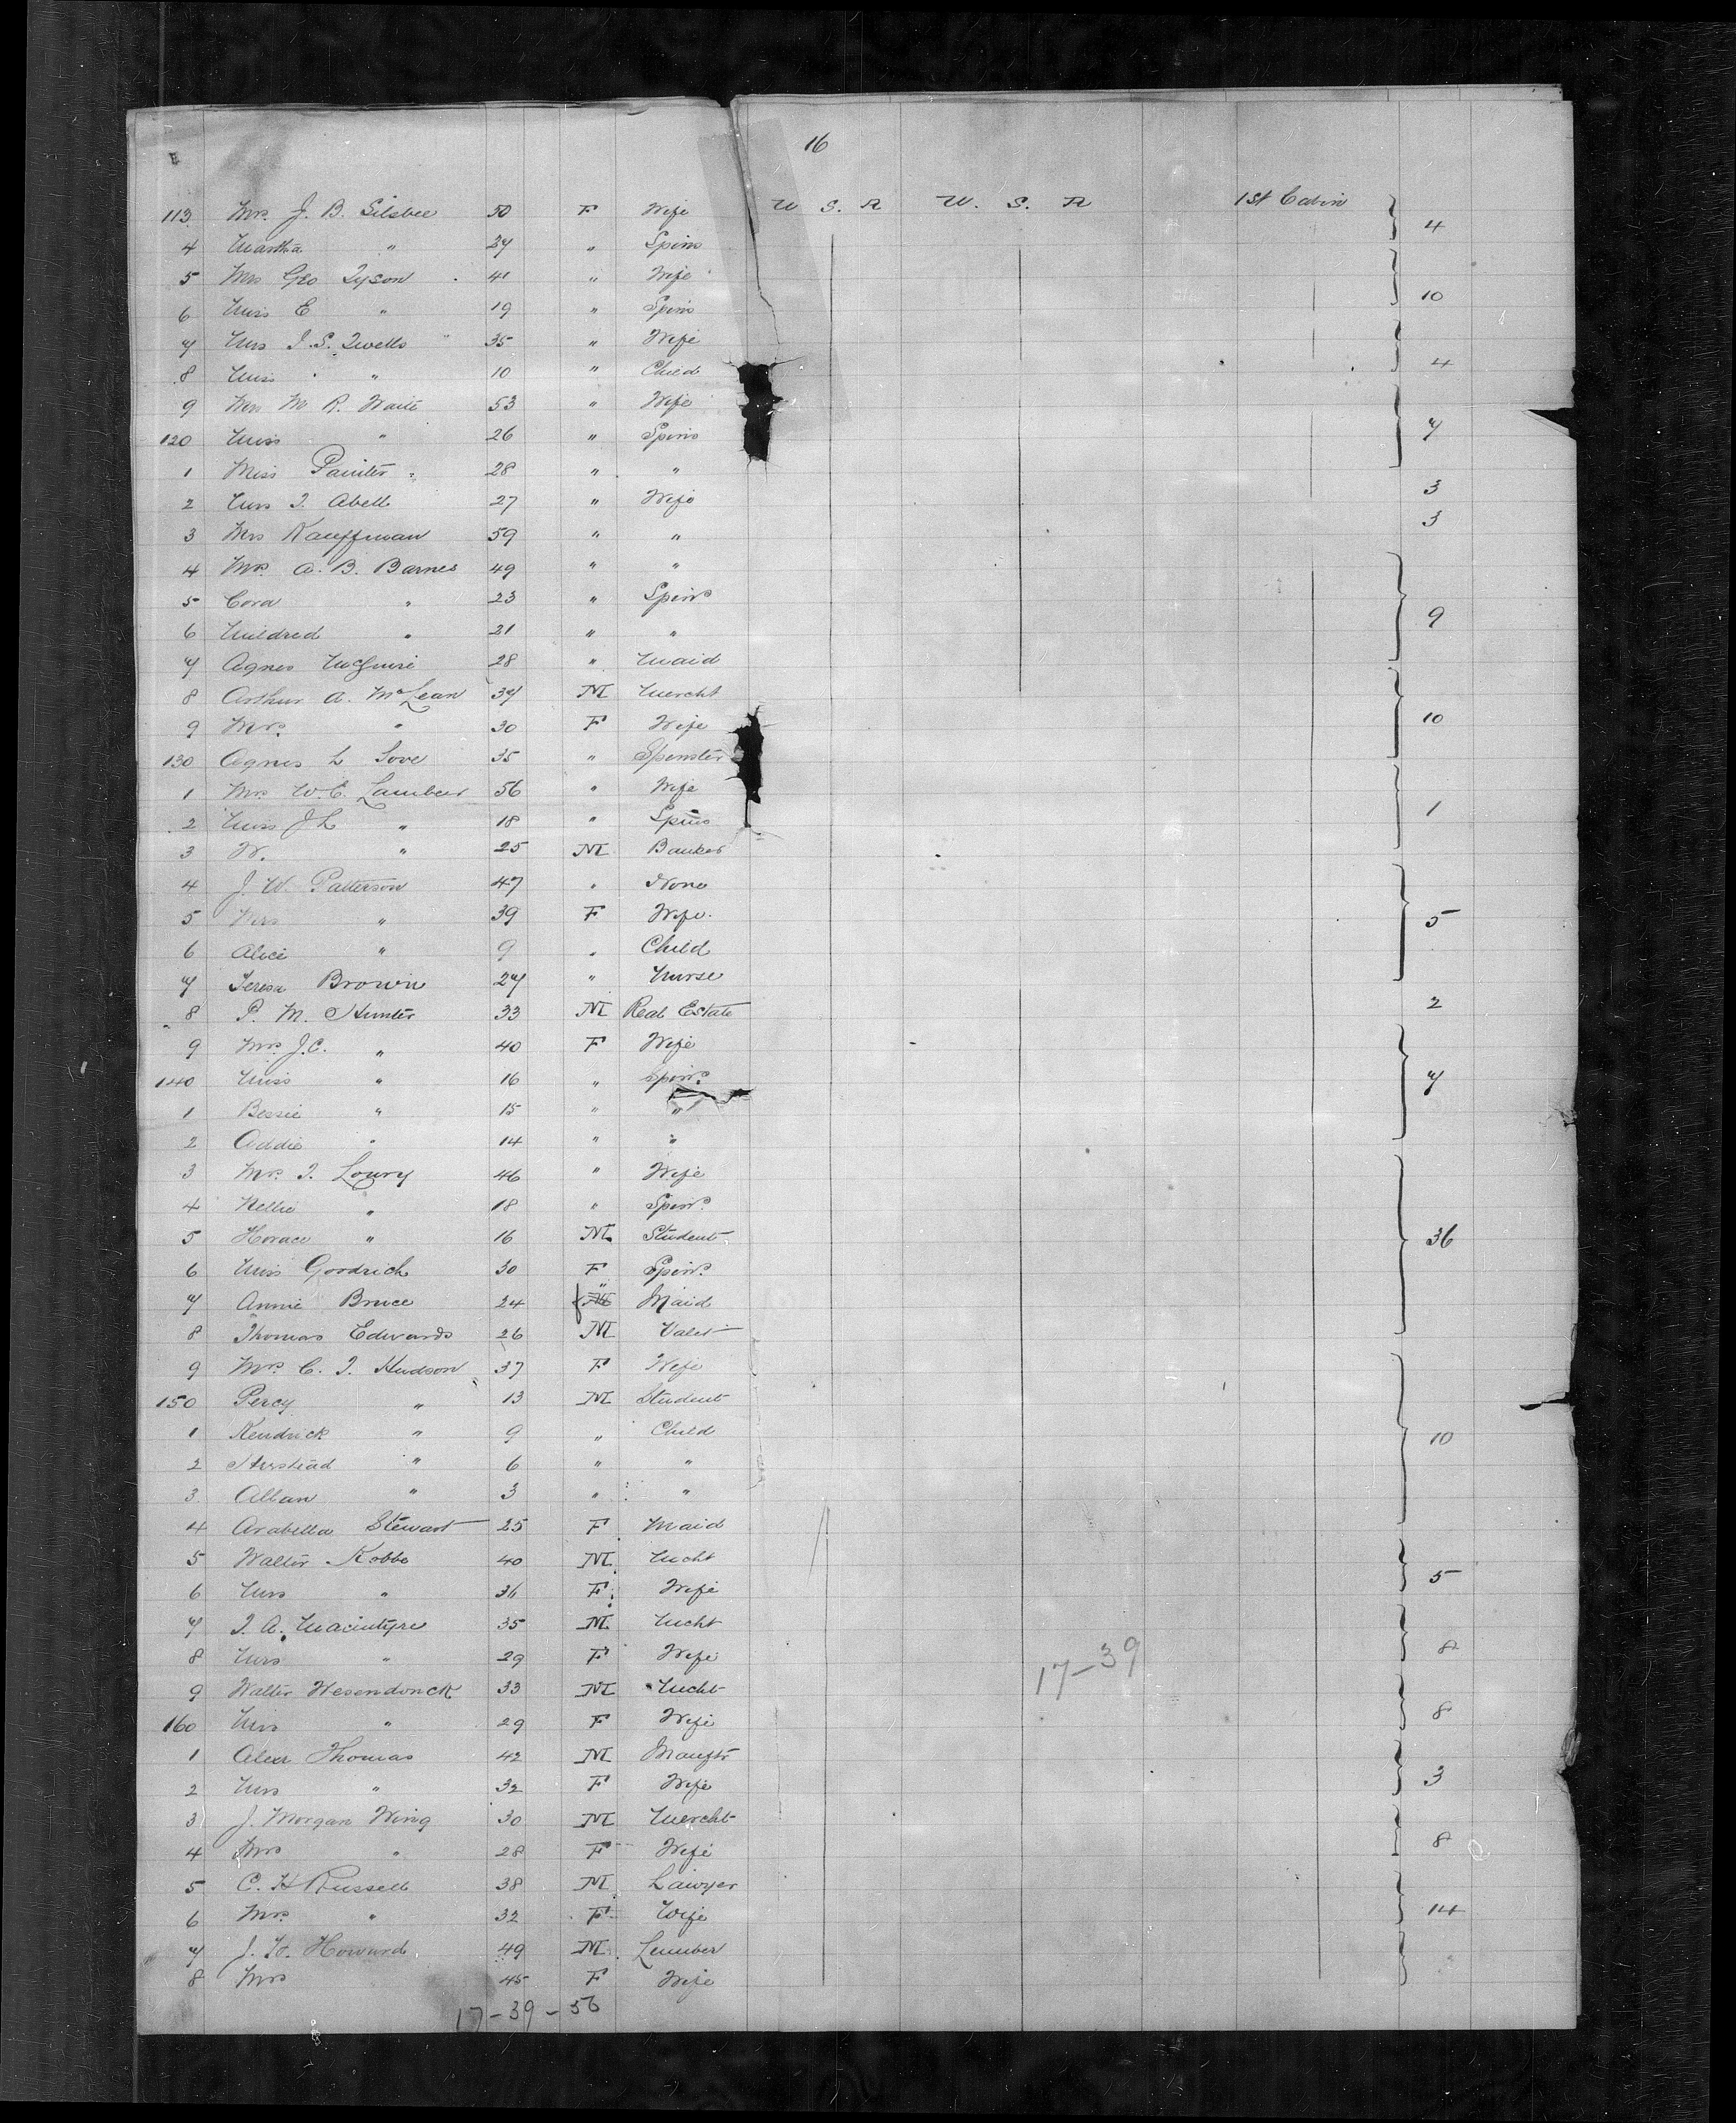 16
113 Mrs. J. B. Silsbee 50 F Wife U S. A U. S. A 1st Cabin 4
4 Martha " 27 " Spins
5 Mrs Geo Tyson 41 " Wife 10
6 Miss E " 19 " Spins
7 Mrs I. S. Twells 35 " Wife 4
8 Miss " 10 " Child
9 Mrs M R. Waite 53 " Wife 7
120 Miss " 26 " Spins
1 Miss Painter 28 " "
2 Mrs T. Abell 27 " Wife 3
3 Mrs Kauffman 59 " " 3
4 Mrs. A. B. Barnes 49 " "
5 Cora " 23 " Spins 9
6 Mildred " 21 " "
7 Agnes McGuire 28 " Maid
8 Arthur A. McLean 37 M Mercht 10
9 Mrs. " 30 F Wife
130 Agnes L Love 35 " Spinster
1 Mrs. W. E. 56 " Wife 1
2 Miss J L " 18 " Spins
3 W. " 25 M Banker
4 J. W. Patterson 47 " None
5 Mrs " 39 F Wife. 5
6 Alice " 9 " Child
7 Teresa Brown 27 " Nurse
8 P. M. Hunter 33 M Real Estate 2
9 Mrs. J. C. " 40 F Wife
140 Miss " 16 " Spins. 7
1 Bessie " 15 " "
2 Addie " 14 " "
3 Mrs. T. Lowry 46 " Wife
4 Nellie " 18 " Spin.
5 Horace " 16 M. Student 36
6 Miss Goodrich 30 F Spin.
7 Annie Bruce 24 f Maid
8 Thomas Edwards 26 M Valet
9 Mrs C. I. Hudson 37 F Wife
150 Percy " 13 M Student
1 Kendrick " 9 " Child 10
2 " 6 " "
3 Allan " 3 " "
4 Arabella Stewart 25 F Maid
5 Walter Kobbe 40 M Mcht 5
6 Mrs " 36 F Wife
7 T. A. Macintyre 35 M Mcht
8 Mrs " 29 F Wife 17-39 8
9 Walter Wesendonck 33 M Mcht
160 Mrs " 29 F Wife 8
1 Alex Thomas 42 M Manftr
2 Mrs " 32 F Wife 3
3 J. Morgan Wing 30 M Mercht
4 Mrs " 28 F Wife 8
5 C. H Russell 38 M Lawyer
6 Mrs. " 32 F Wife 14
7 J. W. Howard 49 M Lumber
8 Mrs 45 F Wife
17-39-56